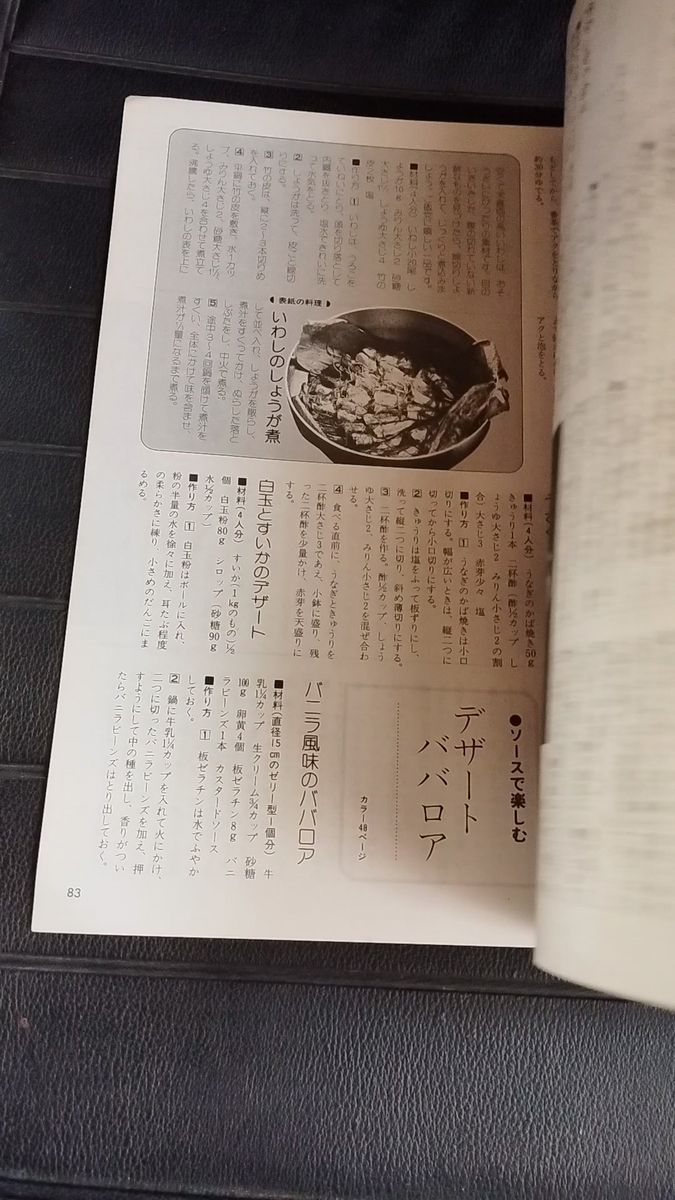 もどしてから、
約30分ゆでる。
アクと泡をとる。
大さじ1½ しょうゆ大さじ4 竹の
皮2枚 塩
■作り方 1 いわしは、うろこを
ていねいにとり、頭を切り落として
内臓を抜きとり、塩水できれいに洗
って水気をとる。
2 しょうがは洗って、皮ごと線切
りにする。
3 竹の皮は、縦に2〜3本切りめ
を入れておく。
4 平鍋に竹の皮を敷き、水1カッ
プ、みりん大さじ2、砂糖大さじ1½、
しょうゆ大さじ4を合わせて煮立て
る。沸騰したら、いわしの表を上に
表紙の料理
いわしのしょうが煮
して並べ入れ、しょうがを散らし、
煮汁をすくってかけ、ぬらした落と
しぶたをし、中火で煮る。
5 途中3〜4回鍋を傾けて煮汁を
すくい、全体にかけて味を含ませ、
煮汁が⅓量になるまで煮る。
■材料(4人分) うなぎのかば焼き50g
きゅうり1本 二杯酢(酢½カップ し
ょうゆ大さじ2 みりん小さじ2の割
合)大さじ3 赤芽少々 塩
■作り方 1 うなぎのかば焼きは小口
切りにする。幅が広いときは、縦二つに
切ってから小口切りにする。
2 きゅうりは塩をふって板ずりにし、
洗って縦二つに切り、斜め薄切りにする。
3 二杯酢を作る。酢½カップ、しょう
ゆ大さじ2、みりん小さじ2を混ぜ合わ
せる。
4 食べる直前に、うなぎときゅうりを
二杯酢大さじ3であえ、小鉢に盛り、残
った二杯酢を少量かけ、赤芽を天盛りに
する。
白玉とすいかのデザート
■材料(4人分) すいか(1kgのもの)½
個 白玉粉80g シロップ(砂糖90g
水½カップ)
■作り方 1 白玉粉はボールに入れ、
粉の半量の水を徐々に加え、耳たぶ程度
の柔らかさに練り、小さめのだんごにま
るめる。
●ソースで楽しむ
デザート
ババロア
カラー48ページ
バニラ風味のババロア
■材料(直径15㎝のゼリー型1個分) 牛
乳1¼カップ 生クリーム¾カップ 砂糖
100g 卵黄4個 板ゼラチン8g バニ
ラビーンズ1本 カスタードソース
■作り方 1 板ゼラチンは水でふやか
しておく。
2 鍋に牛乳1¼カップを入れて火にかけ、
二つに切ったバニラビーンズを加え、押
すようにして中の種を出し、香りがつい
たらバニラビーンズはとり出しておく。
83